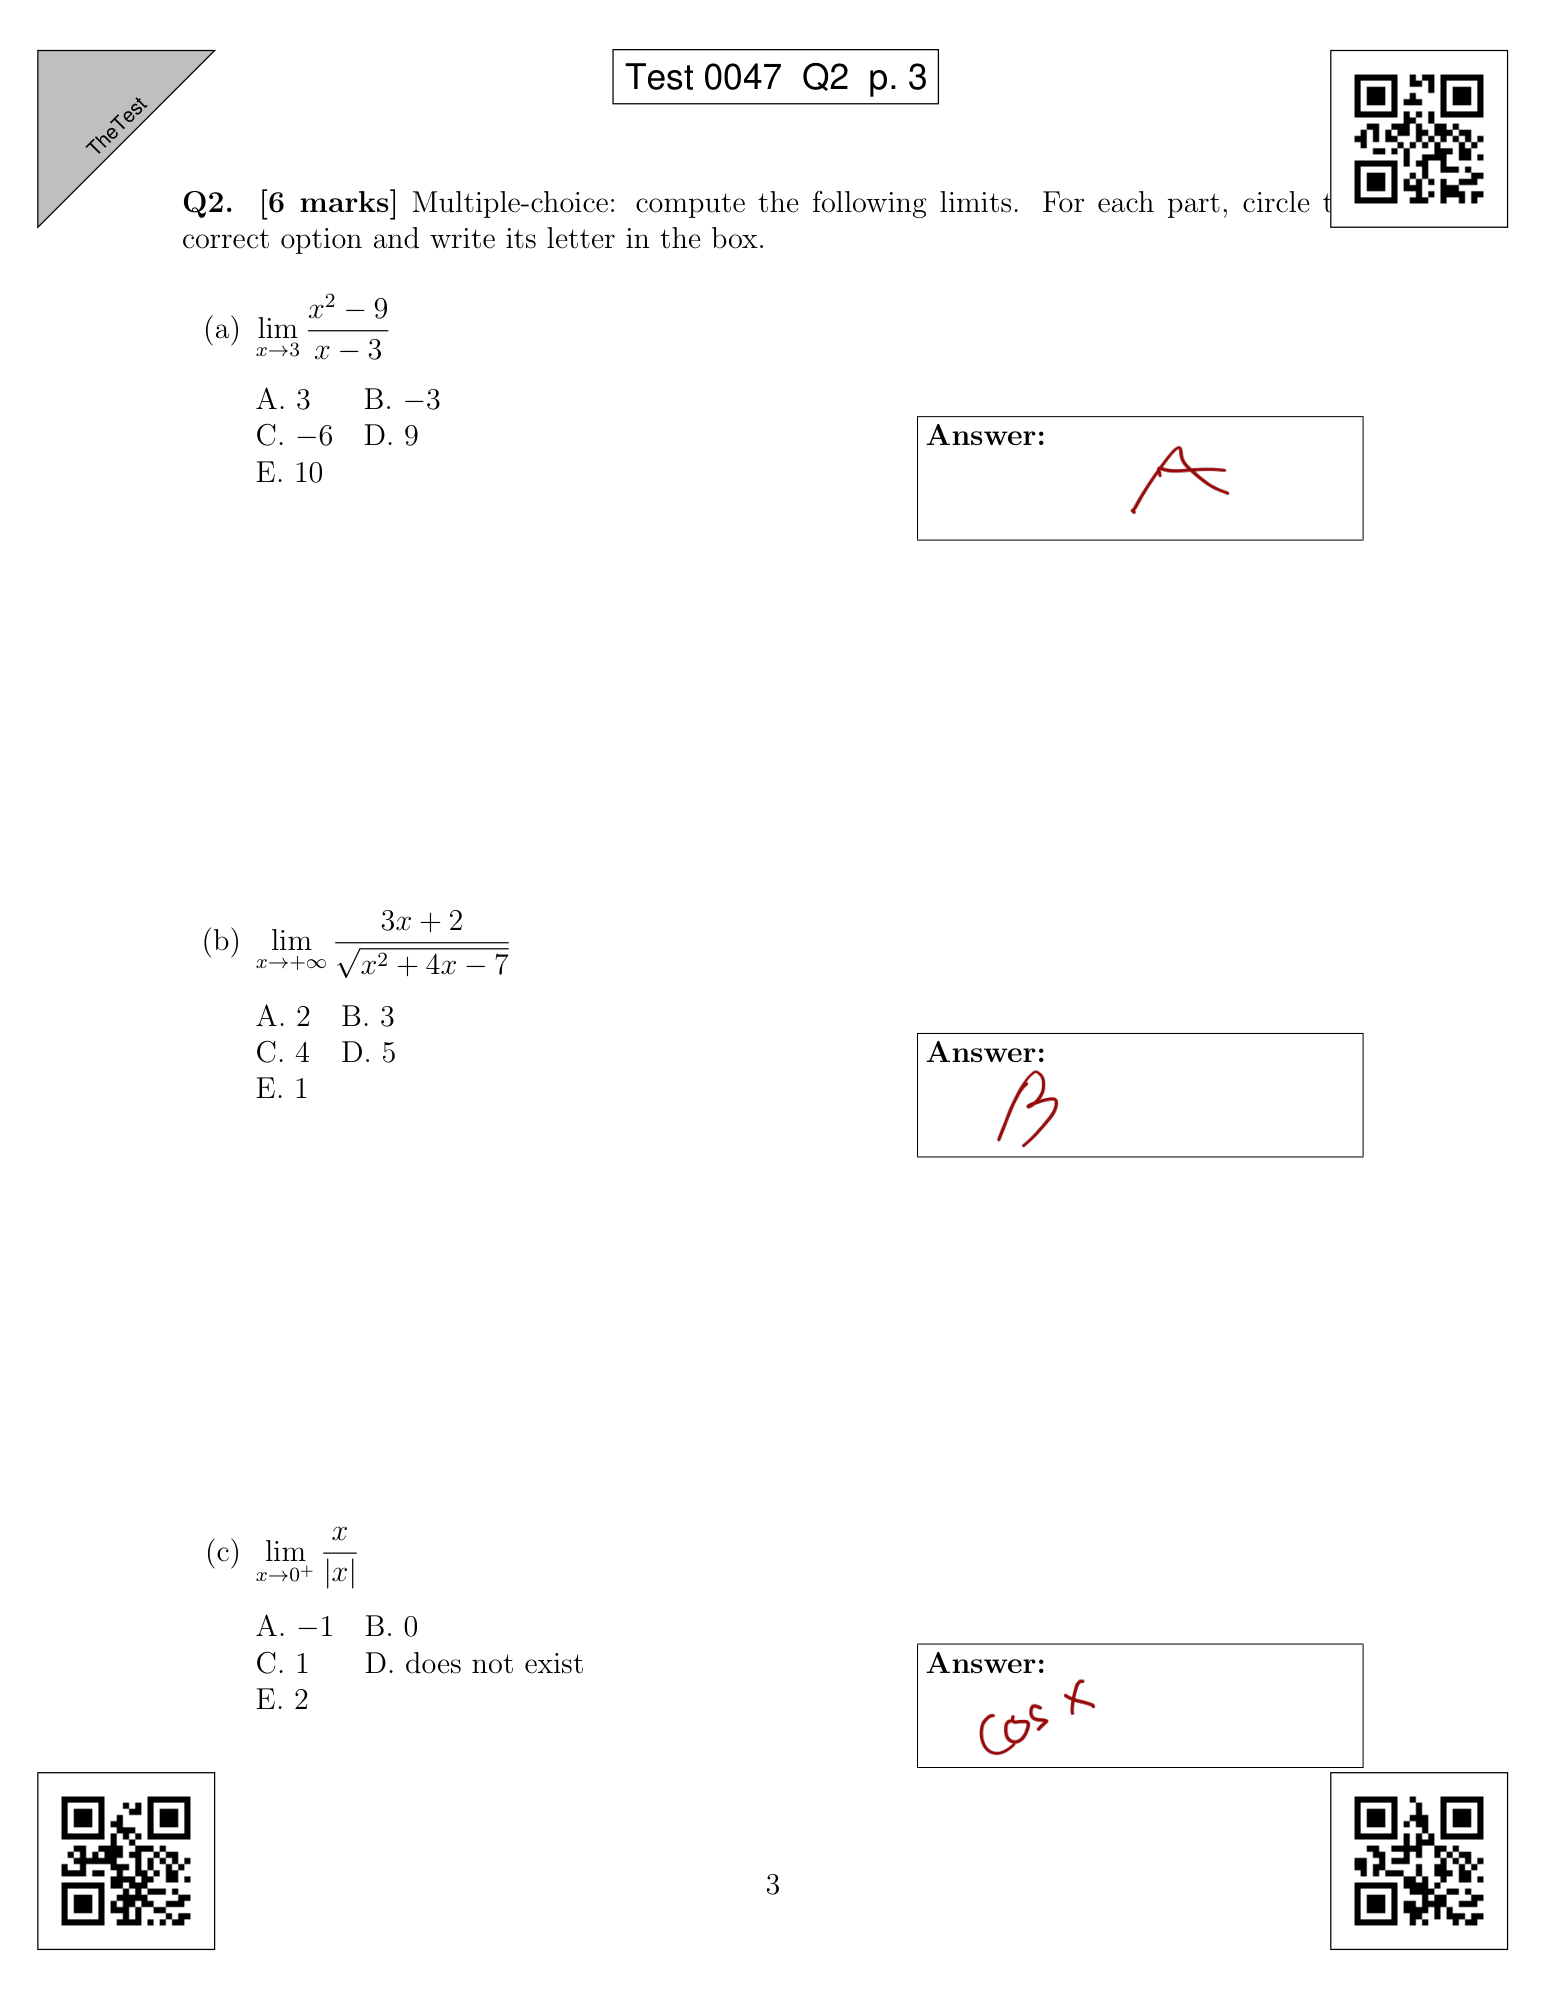 TheTest
Test 0047 Q2 p. 3
Q2. [6 marks] Multiple-choice: compute the following limits. For each part, circle t
correct option and write its letter in the box.
(a) lim x→3 (x² − 9)/(x − 3)
A. 3 B. −3
C. −6 D. 9
E. 10
Answer:
A
(b) lim x→+∞ (3x + 2)/√(x² + 4x − 7)
A. 2 B. 3
C. 4 D. 5
E. 1
Answer:
B
(c) lim x→0⁺ x/|x|
A. −1 B. 0
C. 1 D. does not exist
E. 2
Answer:
cos x
3